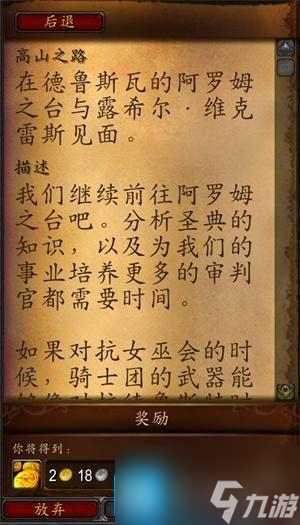 后退
高山之路
在德鲁斯瓦的阿罗姆
之台与露希尔·维克
雷斯见面。
描述
我们继续前往阿罗姆
之台吧。分析圣典的
知识，以及为我们的
事业培养更多的审判
官都需要时间。
如果对抗女巫会的时
候，骑士团的武器能
奖励
你将得到：
2 18
放弃
九游